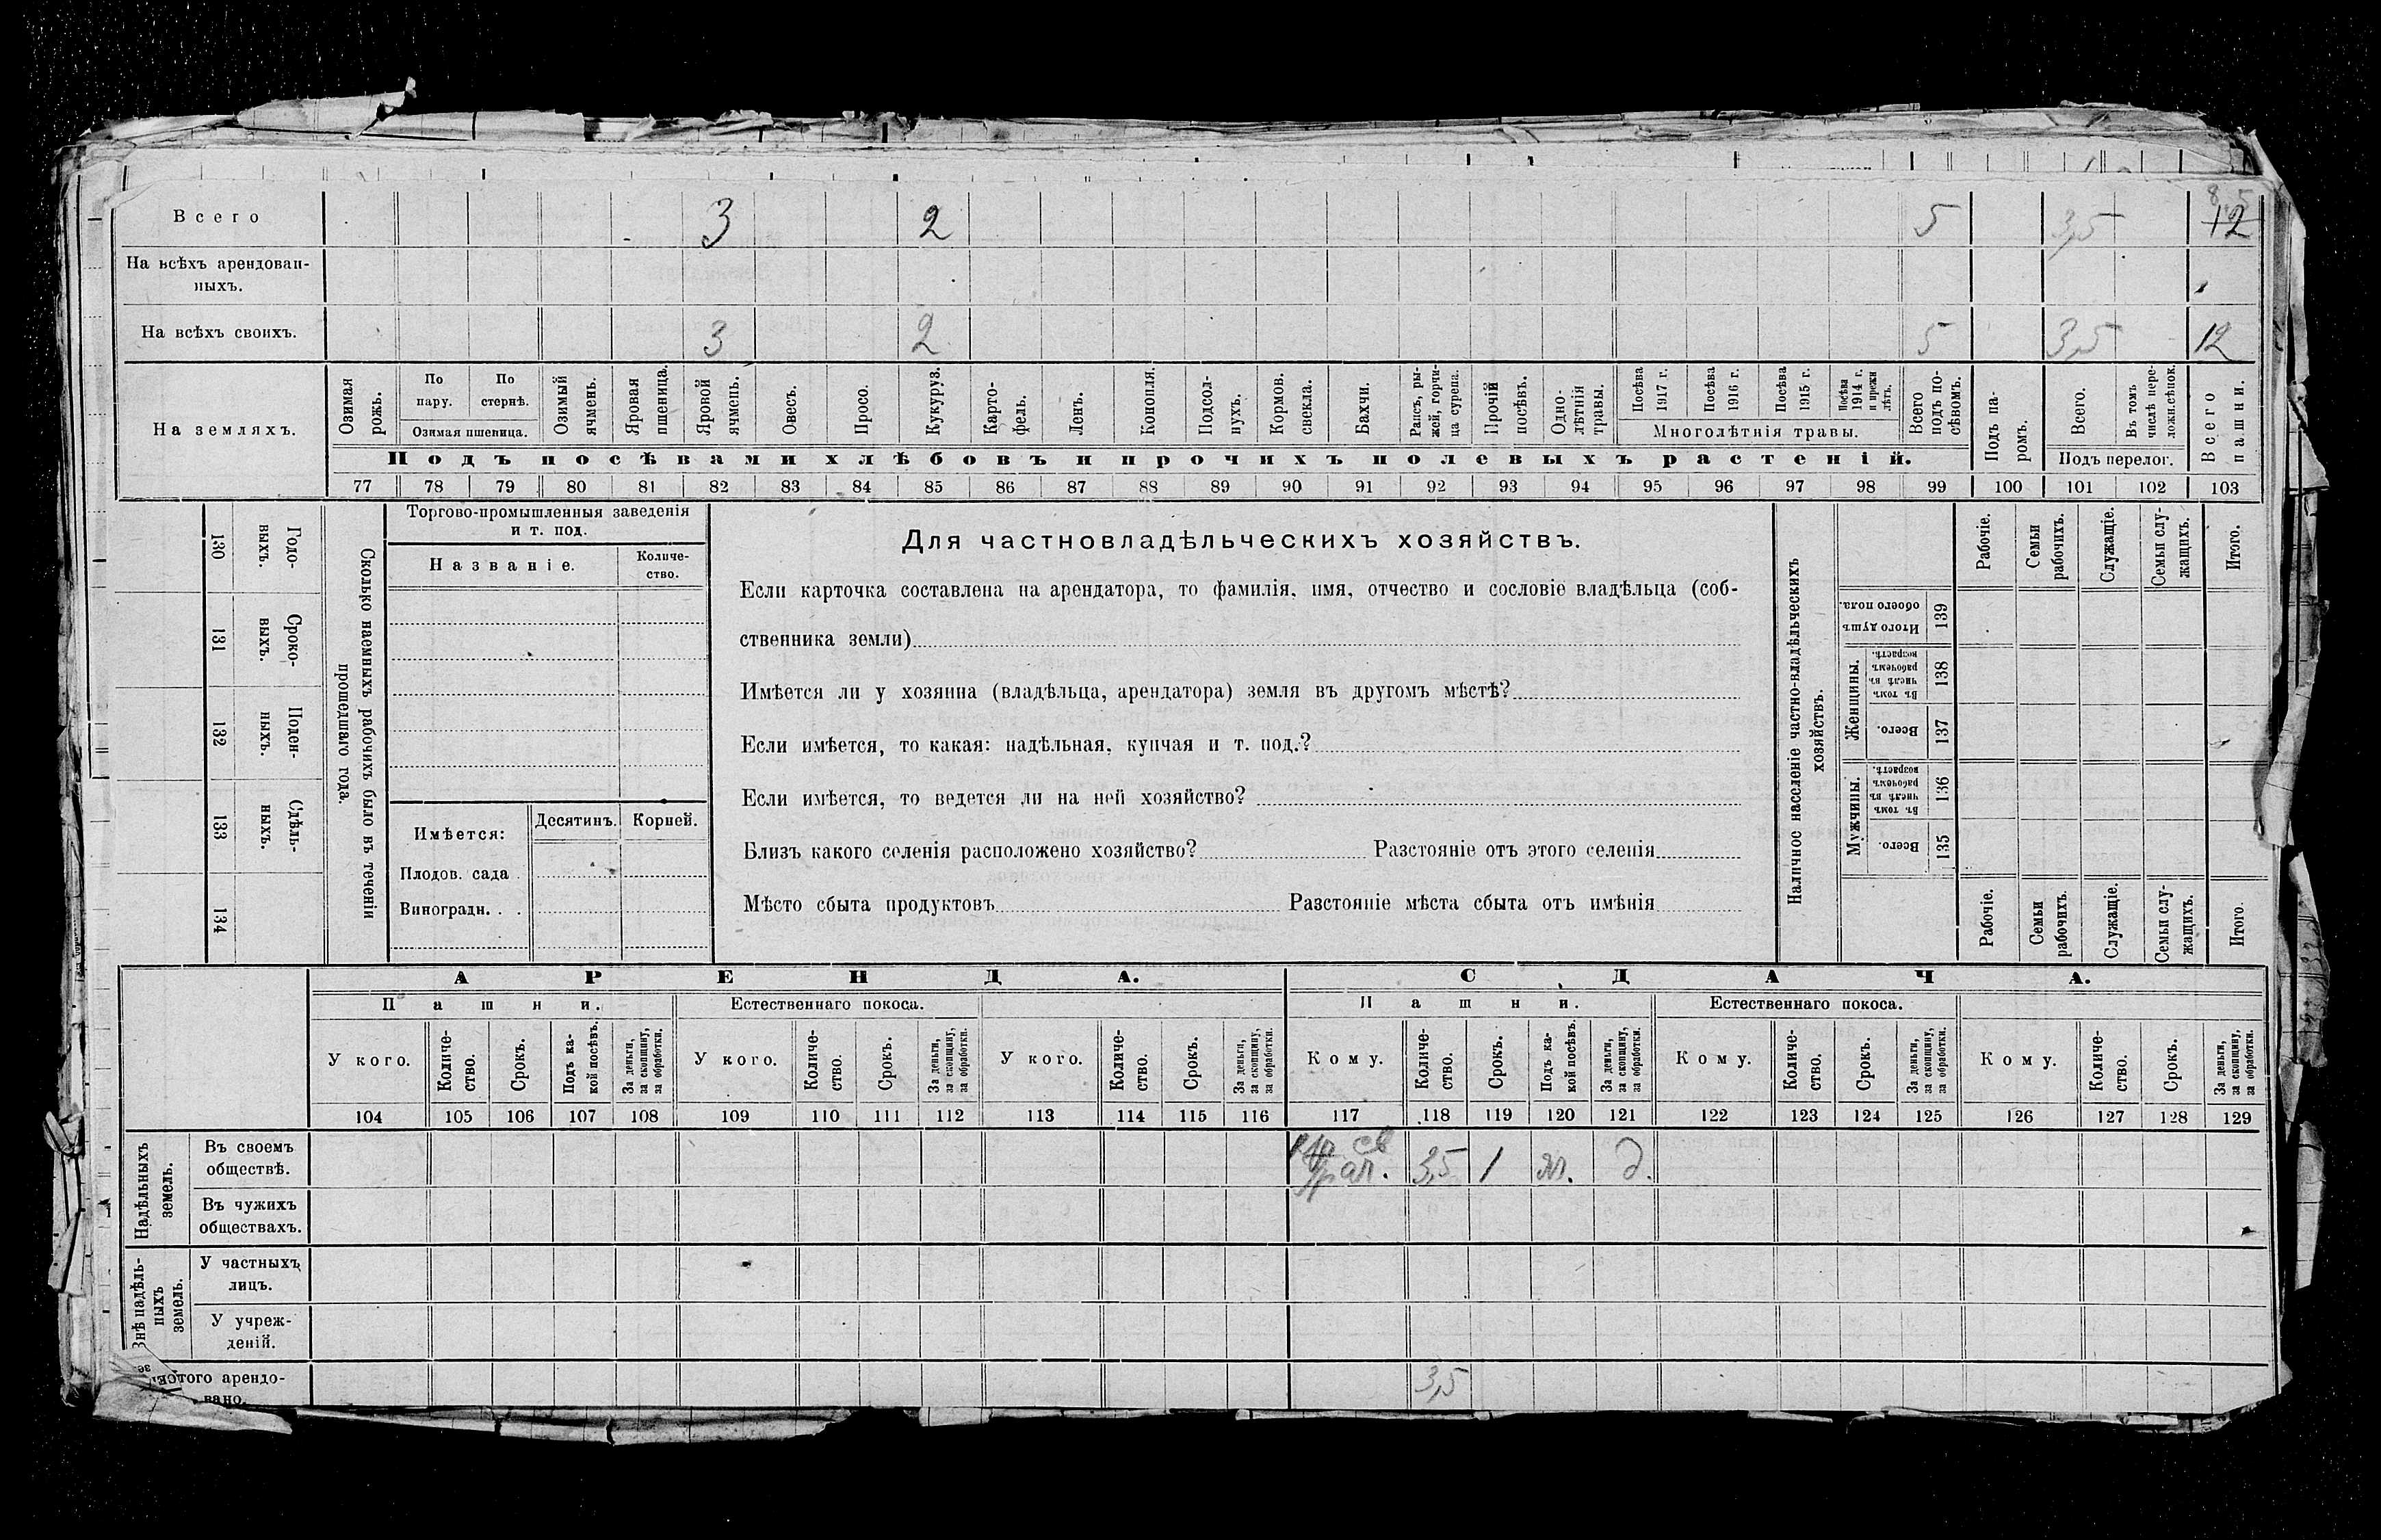 Всего 3 2 5 3,5 8,5 12
На всѣхъ арендован-
ныхъ.
На всѣхъ своихъ. 3 2 5 3,5 12
На земляхъ.
Озимая рожь.
По пару.
По стернѣ.
Озимая пшеница.
Озимый ячмень.
Яровая пшеница.
Яровой ячмень.
Овесъ.
Просо.
Кукуруз.
Карто-
фель.
Ленъ.
Конопля.
Подсол-
нухъ.
Кормов. свекла.
Бахчи.
Рапсъ, ры-
жей, горчи-
ца сурепа.
Прочій посѣвъ.
Одно-
лѣтнія травы.
Посѣва 1917 г.
Посѣва 1916 г.
Посѣва 1915 г.
Посѣва 1914 г. и прежн лѣтъ.
Многолѣтнія травы.
Всего подъ по-
сѣвомъ.
Подъ па-
ромъ.
Всего.
Въ томъ числѣ пере-
ложн.сѣнок.
Подъ перелог.
Всего пашни.
Подъ посѣвами хлѣбовъ и прочихъ полевыхъ растеній.
77 78 79 80 81 82 83 84 85 86 87 88 89 90 91 92 93 94 95 96 97 98 99 100 101 102 103
Годо-
выхъ.
130
Сроко-
выхъ.
131
Поден-
ныхъ.
132
Сдѣль-
ныхъ.
133
134
Сколько наемныхъ рабочихъ было въ теченіи
прошедшаго года.
Торгово-промышленныя заведенія
и т. под.
Названіе.
Количе-
ство.
Имѣется:
Десятинъ.
Корней.
Плодов. сада
Виноградн. . .
Для частновладѣльческихъ хозяйствъ.
Если карточка составлена на арендатора, то фамилія, имя, отчество и сословіе владѣльца (соб-
ственника земли)
Имѣется ли у хозяина (владѣльца, арендатора) земля въ другомъ мѣстѣ?
Если имѣется, то какая: надѣльная, купчая и т. под.?
Если имѣется, то ведется ли на ней хозяйство?
Близъ какого селенія расположено хозяйство? Разстояніе отъ этого селенія
Мѣсто сбыта продуктовъ Разстояніе мѣста сбыта отъ имѣнія
Наличное населеніе частно-владѣльческихъ
хозяйствъ.
Рабочіе.
Семьи рабочихъ.
Служащіе.
Семьи слу-
жащихъ.
Итого.
Итого душъ обоего пола.
139
Женщины.
Въ томъ числѣ въ рабочемъ возрастѣ.
138
Всего.
137
Мужчины.
Въ томъ числѣ въ рабочемъ возрастѣ.
136
Всего.
135
Рабочіе.
Семьи рабочихъ.
Служащіе.
Семьи слу-
жащихъ.
Итого.
АРЕНДА.
СДАЧА.
Пашни.
Естественнаго покоса.
Пашни.
Естественнаго покоса.
У кого.
Количе-
ство.
Срокъ.
Подъ ка-
кой посѣвъ.
За деньги, за скопщину, за обработки.
У кого.
Количе-
ство.
Срокъ.
За деньги, за скопщину, за обработки.
У кого.
Количе-
ство.
Срокъ.
За деньги, за скопщину, за обработки.
Кому.
Количе-
ство.
Срокъ.
Подъ ка-
кой посѣвъ.
За деньги, за скопщину, за обработки.
Кому.
Количе-
ство.
Срокъ.
За деньги, за скопщину, за обработки.
Кому.
Количе-
ство.
Срокъ.
За деньги, за скопщину, за обработки.
104 105 106 107 108 109 110 111 112 113 114 115 116 117 118 119 120 121 122 123 124 125 126 127 128 129
Надѣльныхъ земель.
Въ своемъ
обществѣ.
3,5 1 д.
Въ чужихъ
обществахъ.
Внѣ надѣль-
ныхъ земель.
У частныхъ
лицъ.
У учреж-
деній.
того арендо-
вано.
3,5